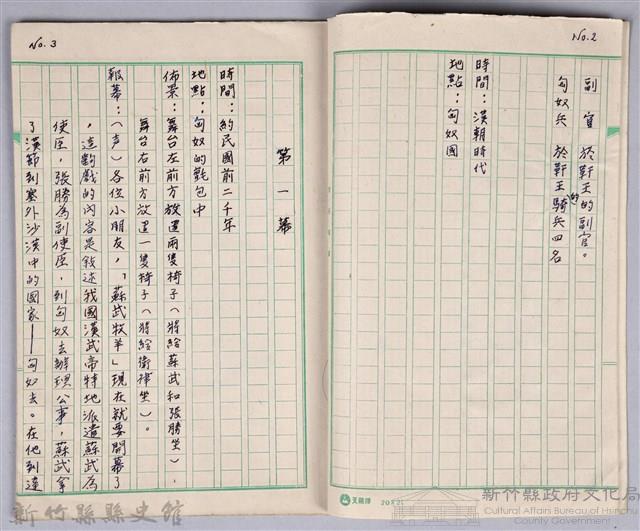 No.2
副官 於靬王的副官。
匈奴兵 於靬王的騎兵四名
時間：漢朝時代
地點：匈奴國
天鵝牌 20×2
No.3
第一幕
時間：約民國前二千年
地點：匈奴的氈包中
佈景：舞台左前方放置兩隻椅子（將給蘇武和張勝坐），
舞台右前方放置一隻椅子（將給衛律坐）。
報幕：（声）各位小朋友，「蘇武牧羊」現在就要開幕了
，這齣戲的內容是敘述我國漢武帝特地派遣蘇武為
使臣，張勝為副使臣，到匈奴去辦理公事，蘇武拿
了漢節到塞外沙漠中的國家——匈奴去。在他到達
新竹縣縣史館
新竹縣政府文化局
Cultural Affairs Bureau of Hsinchu